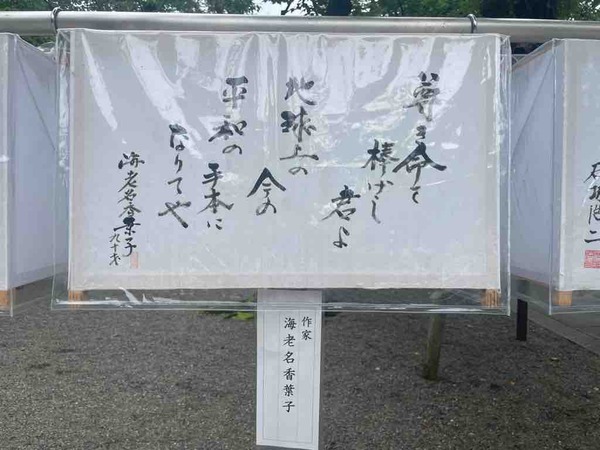 尊き命を
捧げし
君よ
地球上の
今の
平和の
手本に
なりてや
海老名香葉子
九十才
作家
海老名香葉子
石坂浩二